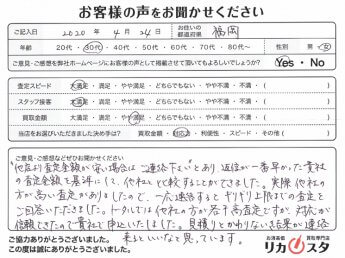 お客様の声をお聞かせください
ご記入日 2020年 4月 24日 お住いの都道府県 福岡
年齢 20代・30代・40代・50代・60代・70代・80代～ 性別 男・女
ご意見・ご感想を弊社ホームページにお客様の声として掲載させて頂いてもよろしいでしょうか? Yes・No
査定スピード 大満足・満足・やや満足・どちらでもない・やや不満・不満・( )
スタッフ接客 大満足・満足・やや満足・どちらでもない・やや不満・不満・( )
買取金額 大満足・満足・やや満足・どちらでもない・やや不満・不満・( )
当店をお選びいただきました決め手は? 買取金額・対応力・利便性・スピード・その他( )
ご意見・ご感想などぜひお聞かせください
"他店より査定金額が安い場合はご連絡下さい"とあり、返信が一番早かった貴社
の査定金額を基準にして、他社と比較することができました。実際 他社の
方が高い査定がありましたので、一応連絡するとギリギリ上限までの査定を
ご回答いただきました。トータルでは他社の方が若干高査定ですが、対応が
信頼できたので貴社で申込いたしました。見積りとかわりない結果が連絡
来るといいなと思っています。
ご協力ありがとうございました。
この度は誠にありがとうございました。
お酒高価買取専門店
リカスタ